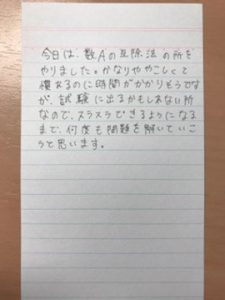 今日は、数Aの互除法の所を
やりました。かなりややこしくて
慣れるのに時間がかかりそうです
が、試験に出るかもしれない所
なので、スラスラできるようになる
まで、何度も問題を解いていこ
うと思います。